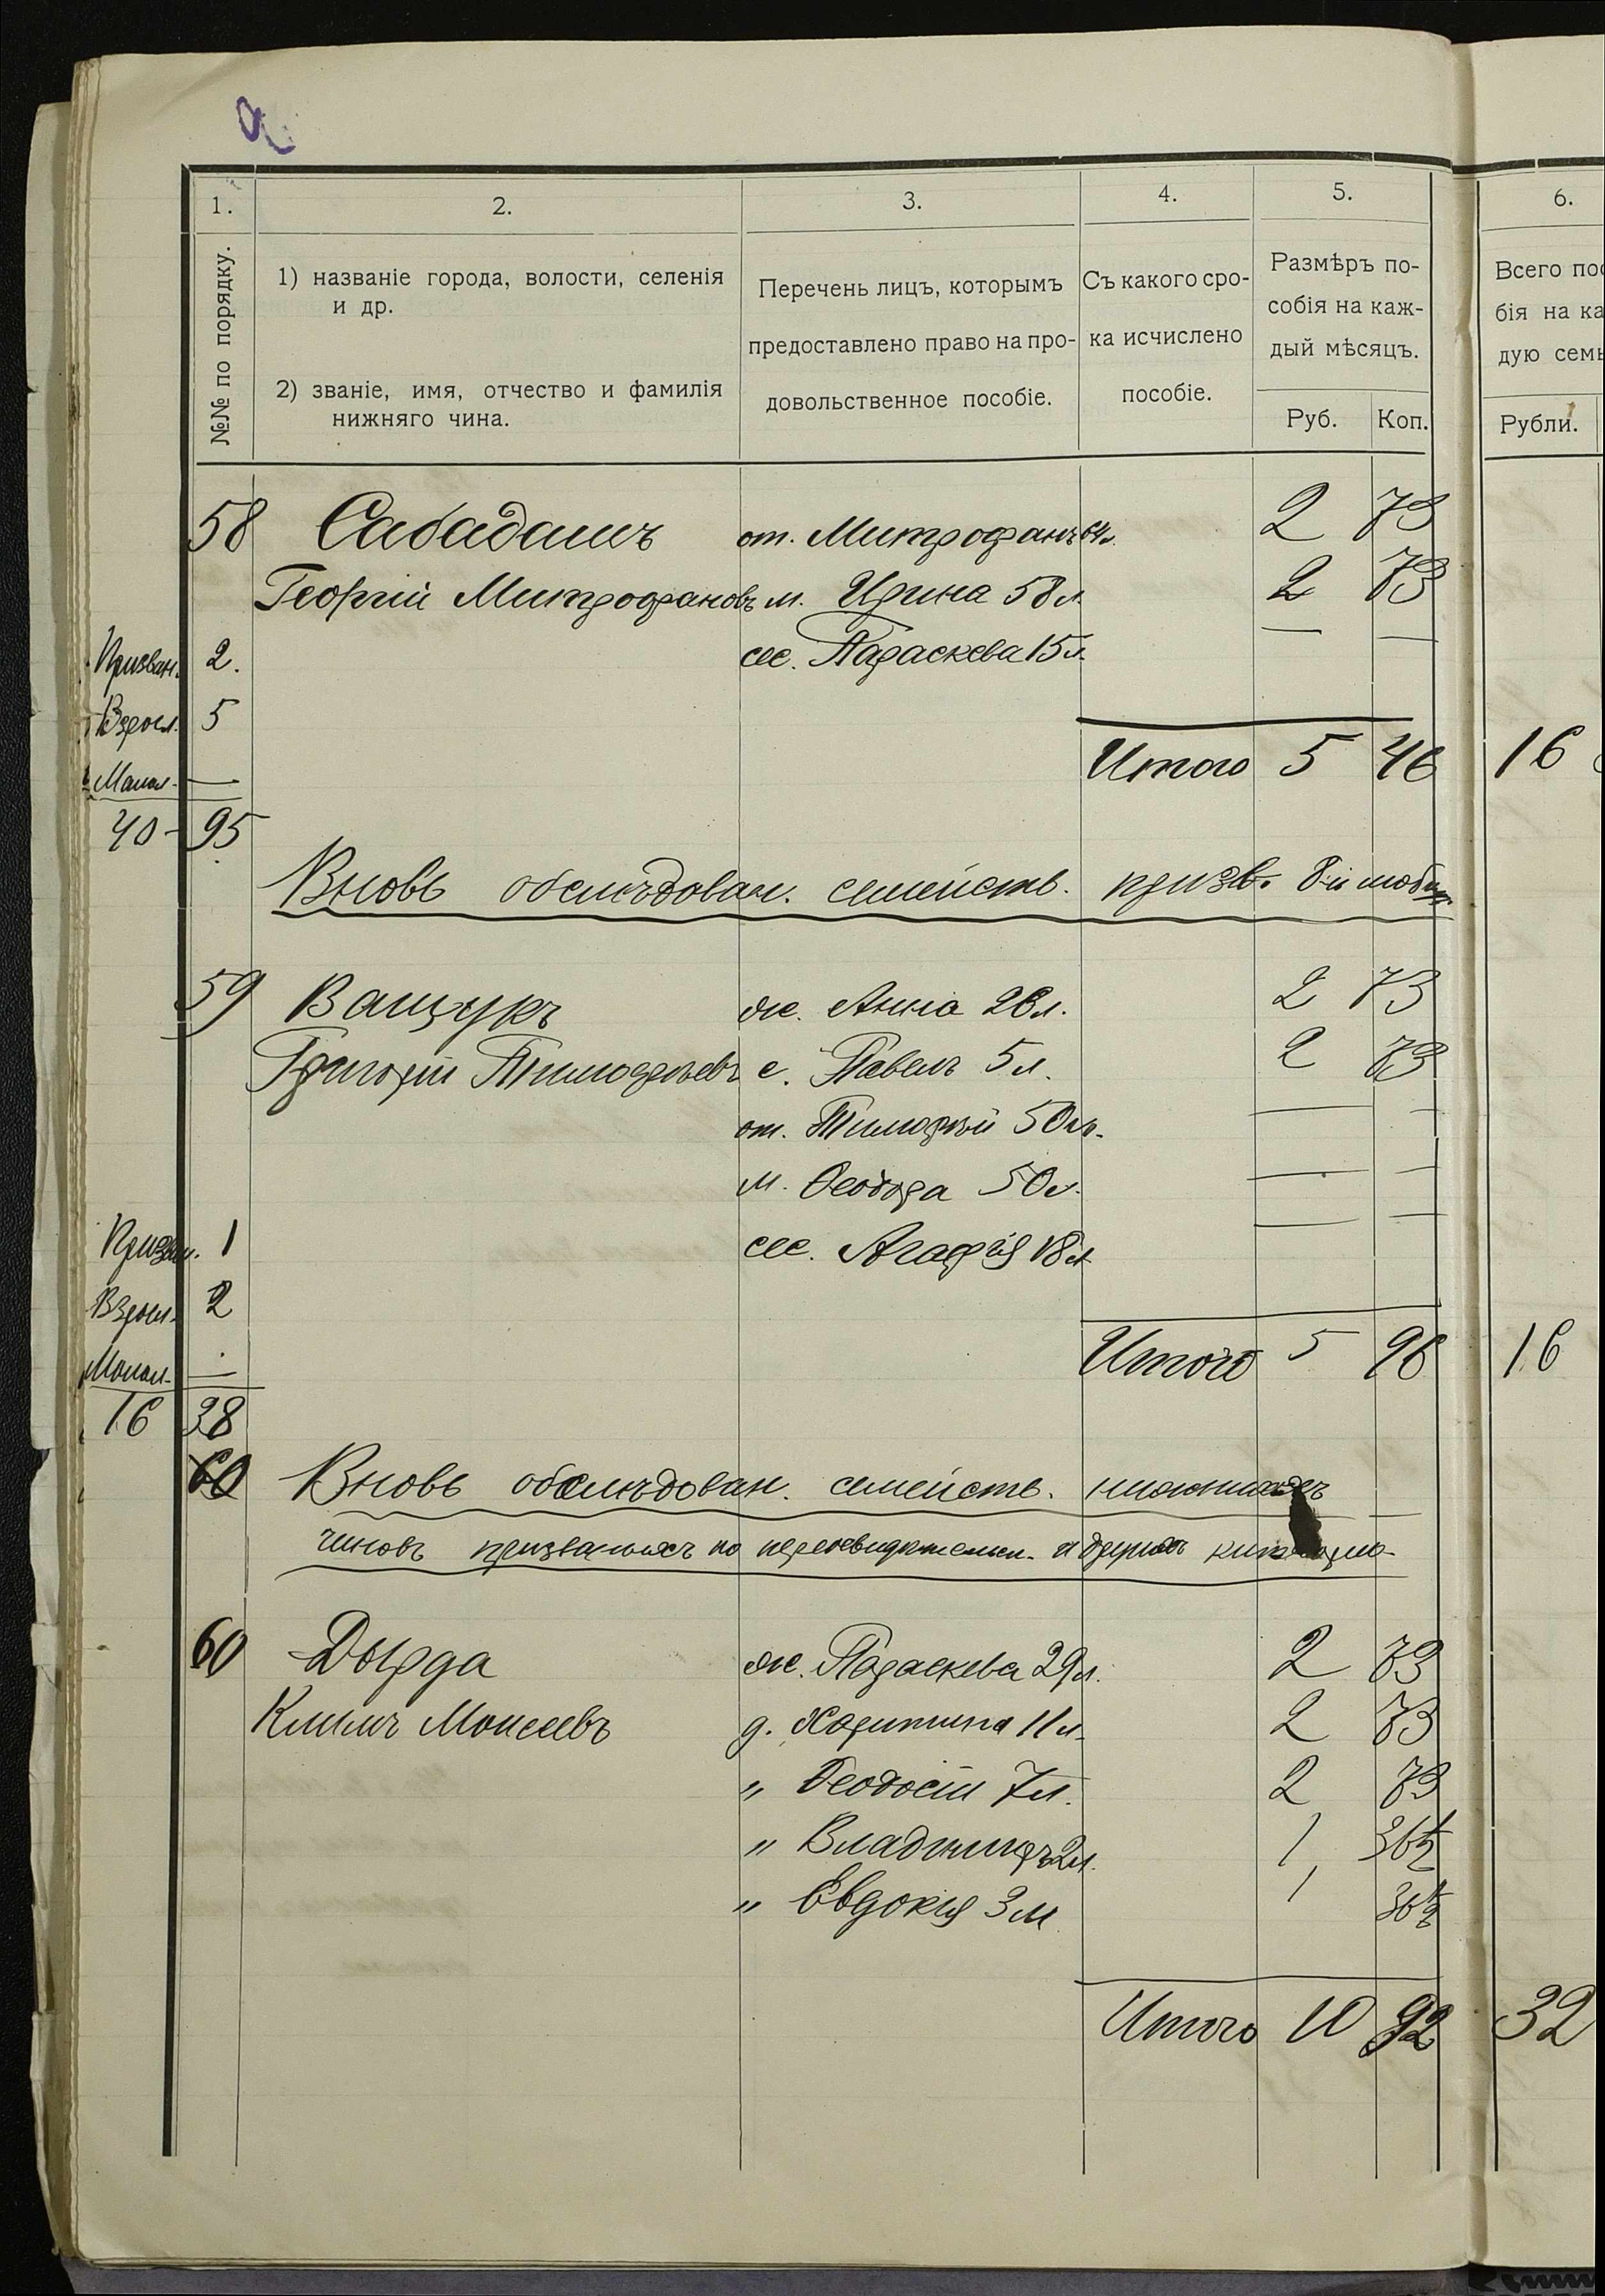 1. 2. 3. 4. 5. 6.
№№ по порядку.
1) названіе города, волости, селенія
и др.
2) званіе, имя, отчество и фамилія
нижняго чина.
Перечень лицъ, которымъ
предоставлено право на про-
довольственное пособіе.
Съ какого сро-
ка исчислено
пособіе.
Размѣръ по-
собія на каж-
дый мѣсяцъ.
Руб. Коп.
Всего пос
бія на ка
дую семь
Рубли.
58 Сабадашъ от. Митрофанъ 64 л. 2 73
Георгій Митрофановъ м. Ирина 58 л. 2 73
Призван. 2. сес. Параскева 15 л. — —
Взросл. 5
Итого 5 46 16
Малол. —
40 - 95
Вновь обслѣдован. семейств. призв. 8-й мобил.
59 Ващукъ ж. Анна 26 л. 2 73
Григорій Тимофѣевъ с. Павелъ 5 л. 2 73
от. Тимофѣй 50 л. — —
м. Феодора 50 л. — —
Призван. 1 сес. Агафія 18 л. — —
Взросл. 2
Малол. — Итого 5 46 16
16 38
60 Вновь обслѣдован. семейств. нижнихъ
чиновъ призванныхъ по переосвидѣтельств. и другихъ
60 Дырда ж. Параскева 29 л. 2 73
Климъ Моисеевъ д. Харитина 11 л. 2 73
" Феодосій 7 л. 2 73
" Владиміръ 2 л. 1 36½
" Евдокія 3 м 1 36½
Итого 10 92 32